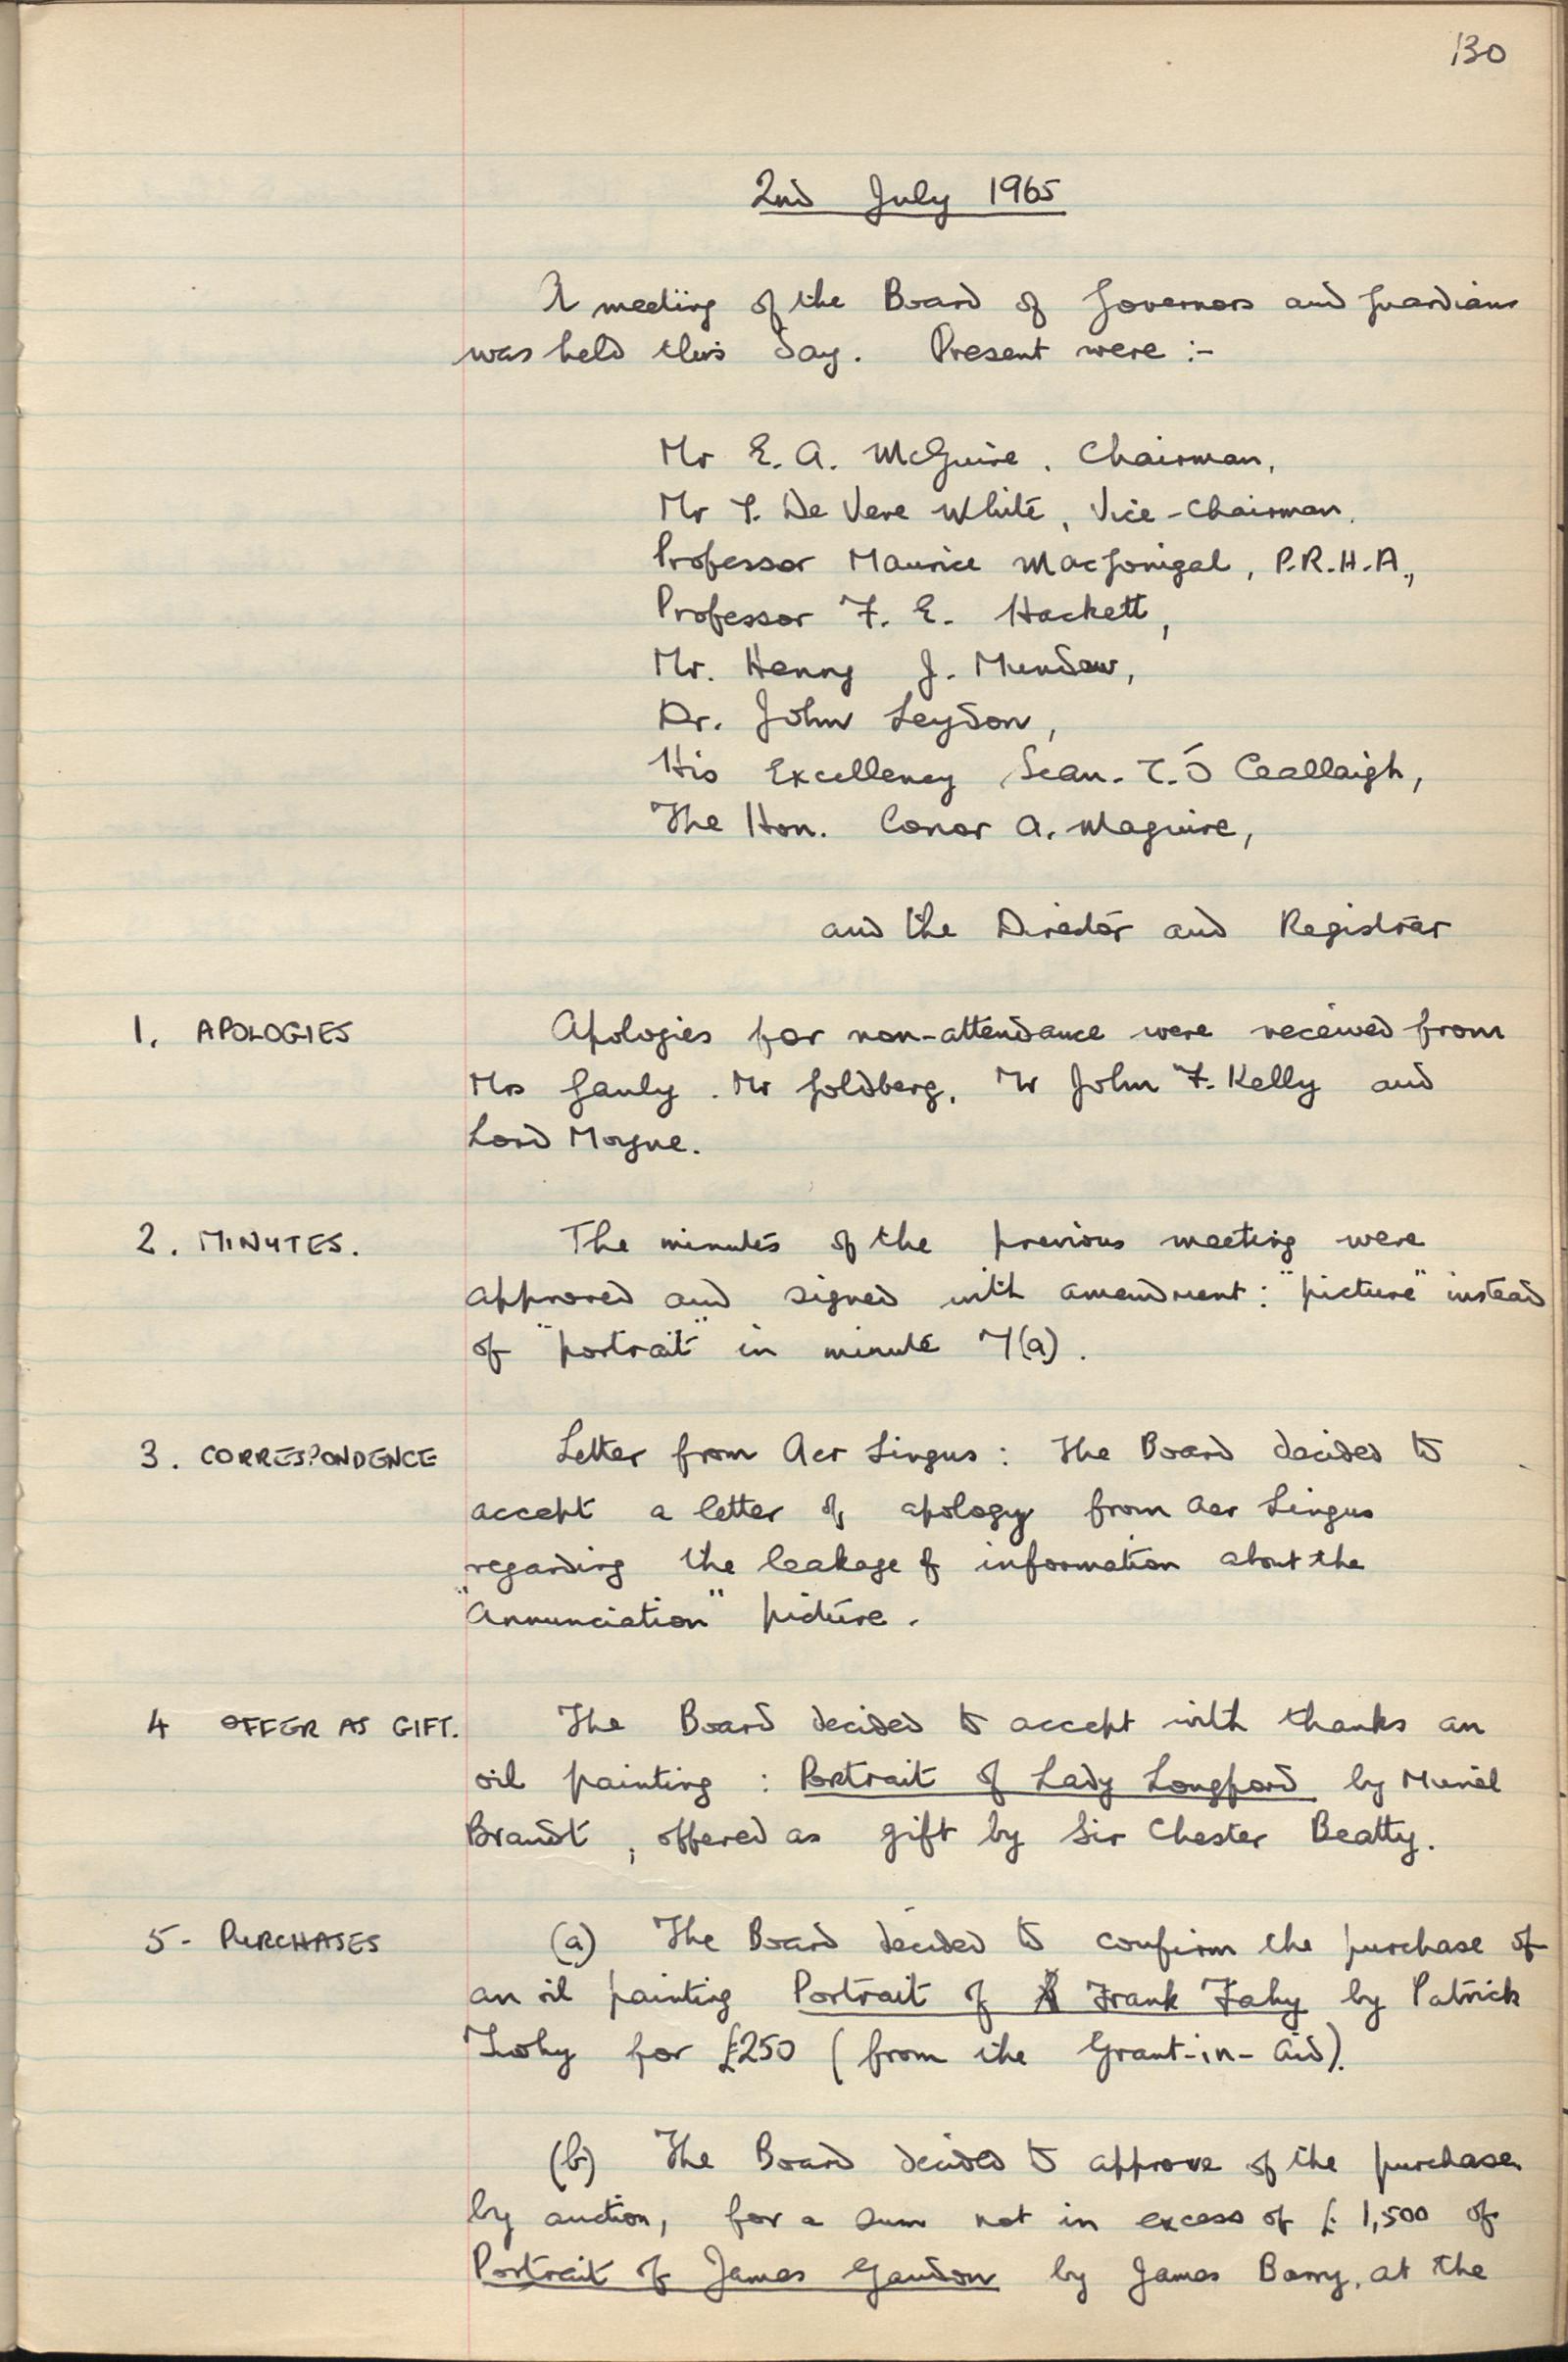 130
2nd July 1965
A meeting of the Board of Governors and Guardians
was held this day. Present were :-
Mr E. A. McGuire, Chairman,
Mr T. De Vere White, Vice-Chairman,
Professor Maurice MacGonigal, P.R.H.A.,
Professor F. E. Hackett,
Mr. Henry J. Mundow,
Dr. John Leydon,
His Excellency Sean. T. Ó Ceallaigh,
The Hon. Conor A. Maguire,
and the Director and Registrar
1. APOLOGIES Apologies for non-attendance were received from
Mrs Ganly. Mr Goldberg, Mr John F. Kelly and
Lord Moyne.
2. MINUTES. The minutes of the previous meeting were
approved and signed with amendment: "picture" instead
of "portrait" in minute 7(a).
3. CORRESPONDENCE Letter from Aer Lingus: The Board decided to
accept a letter of apology from Aer Lingus
regarding the leakage of information about the
"Annunciation" picture.
4 OFFER AS GIFT. The Board decided to accept with thanks an
oil painting : Portrait of Lady Longford by Muriel
Brandt, offered as gift by Sir Chester Beatty.
5- PURCHASES (a) The Board decided to confirm the purchase of
an oil painting Portrait of Frank Fahy by Patrick
Tuohy for £250 (from the Grant-in-Aid).
(b) The Board decided to approve of the purchase
by auction, for a sum not in excess of £1,500 of
Portrait of James Gandon by James Barry, at the